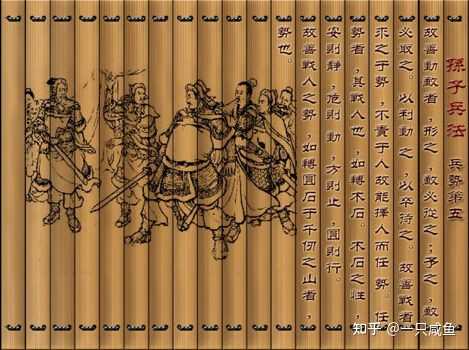 孫子兵法 兵勢第五
故善動敵者，形之，敵必從之；予之，敵
必取之。以利動之，以卒待之。故善戰者
求之于勢，不責于人故能擇人而任勢。任
勢者，其戰人也，如轉木石。木石之性，
安則靜，危則動，方則止，圓則行。
故善戰人之勢，如轉圓石于千仞之山者，
勢也。
知乎 @一只咸鱼